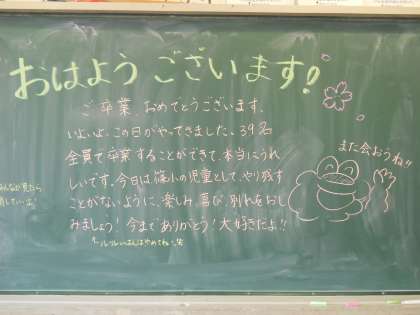 おはようございます!
ご卒業、おめでとうございます。
いよいよ、この日がやってきました。39名
全員で卒業することができて、本当にうれ
しいです。今日は篠小の児童として、やり残す
ことがないように、楽しみ、喜び、別れをおし
みましょう!今までありがとう!大好きだよ!!
また会おうね!!
みんなが見たら
消していいよ!